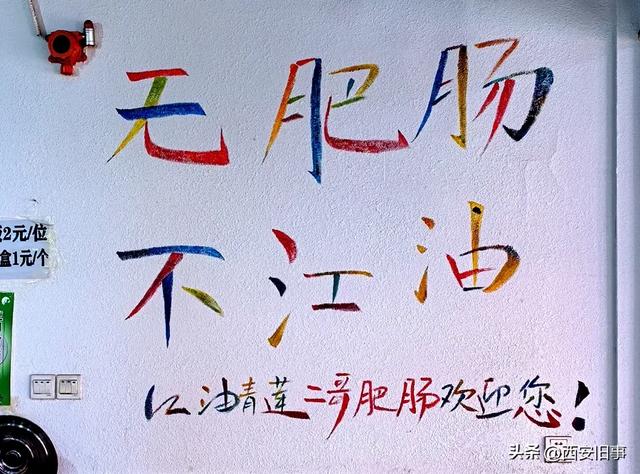 无肥肠
不江油
江油青莲二哥肥肠欢迎您！
2元/位
盒1元/个
头条@西安旧事